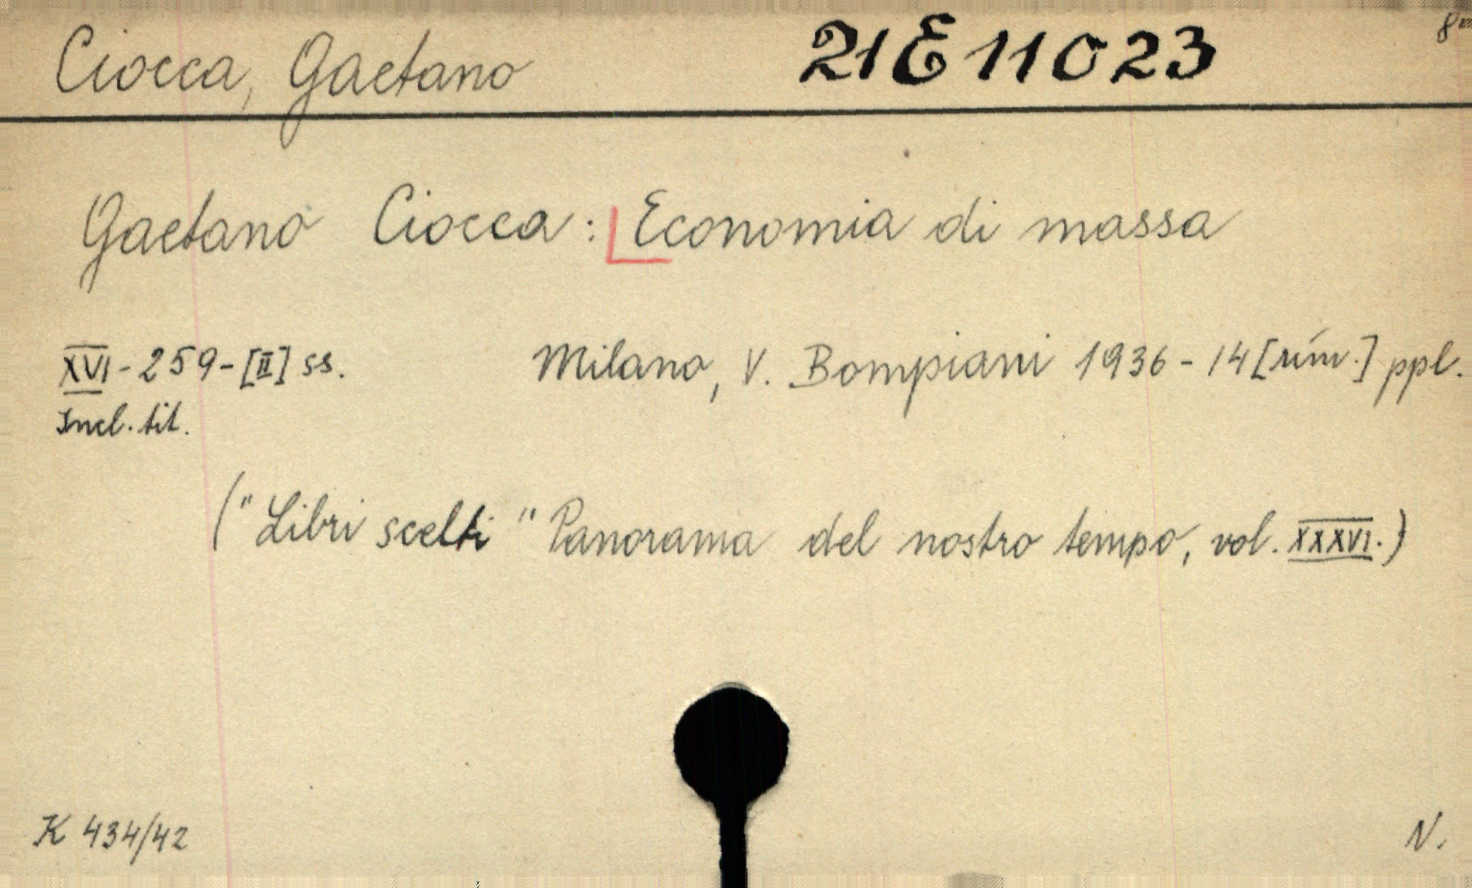 Ciocca, Gaetano 21 E 11023 8°
Gaetano Ciocca: Economia di massa
XVI-259-[II] ss. Milano, V. Bompiani 1936-14 [řím.] ppl.
Incl. tit.
("Libri scelti" Panorama del nostro tempo, vol. XXXVI.)
K 434/42 N.